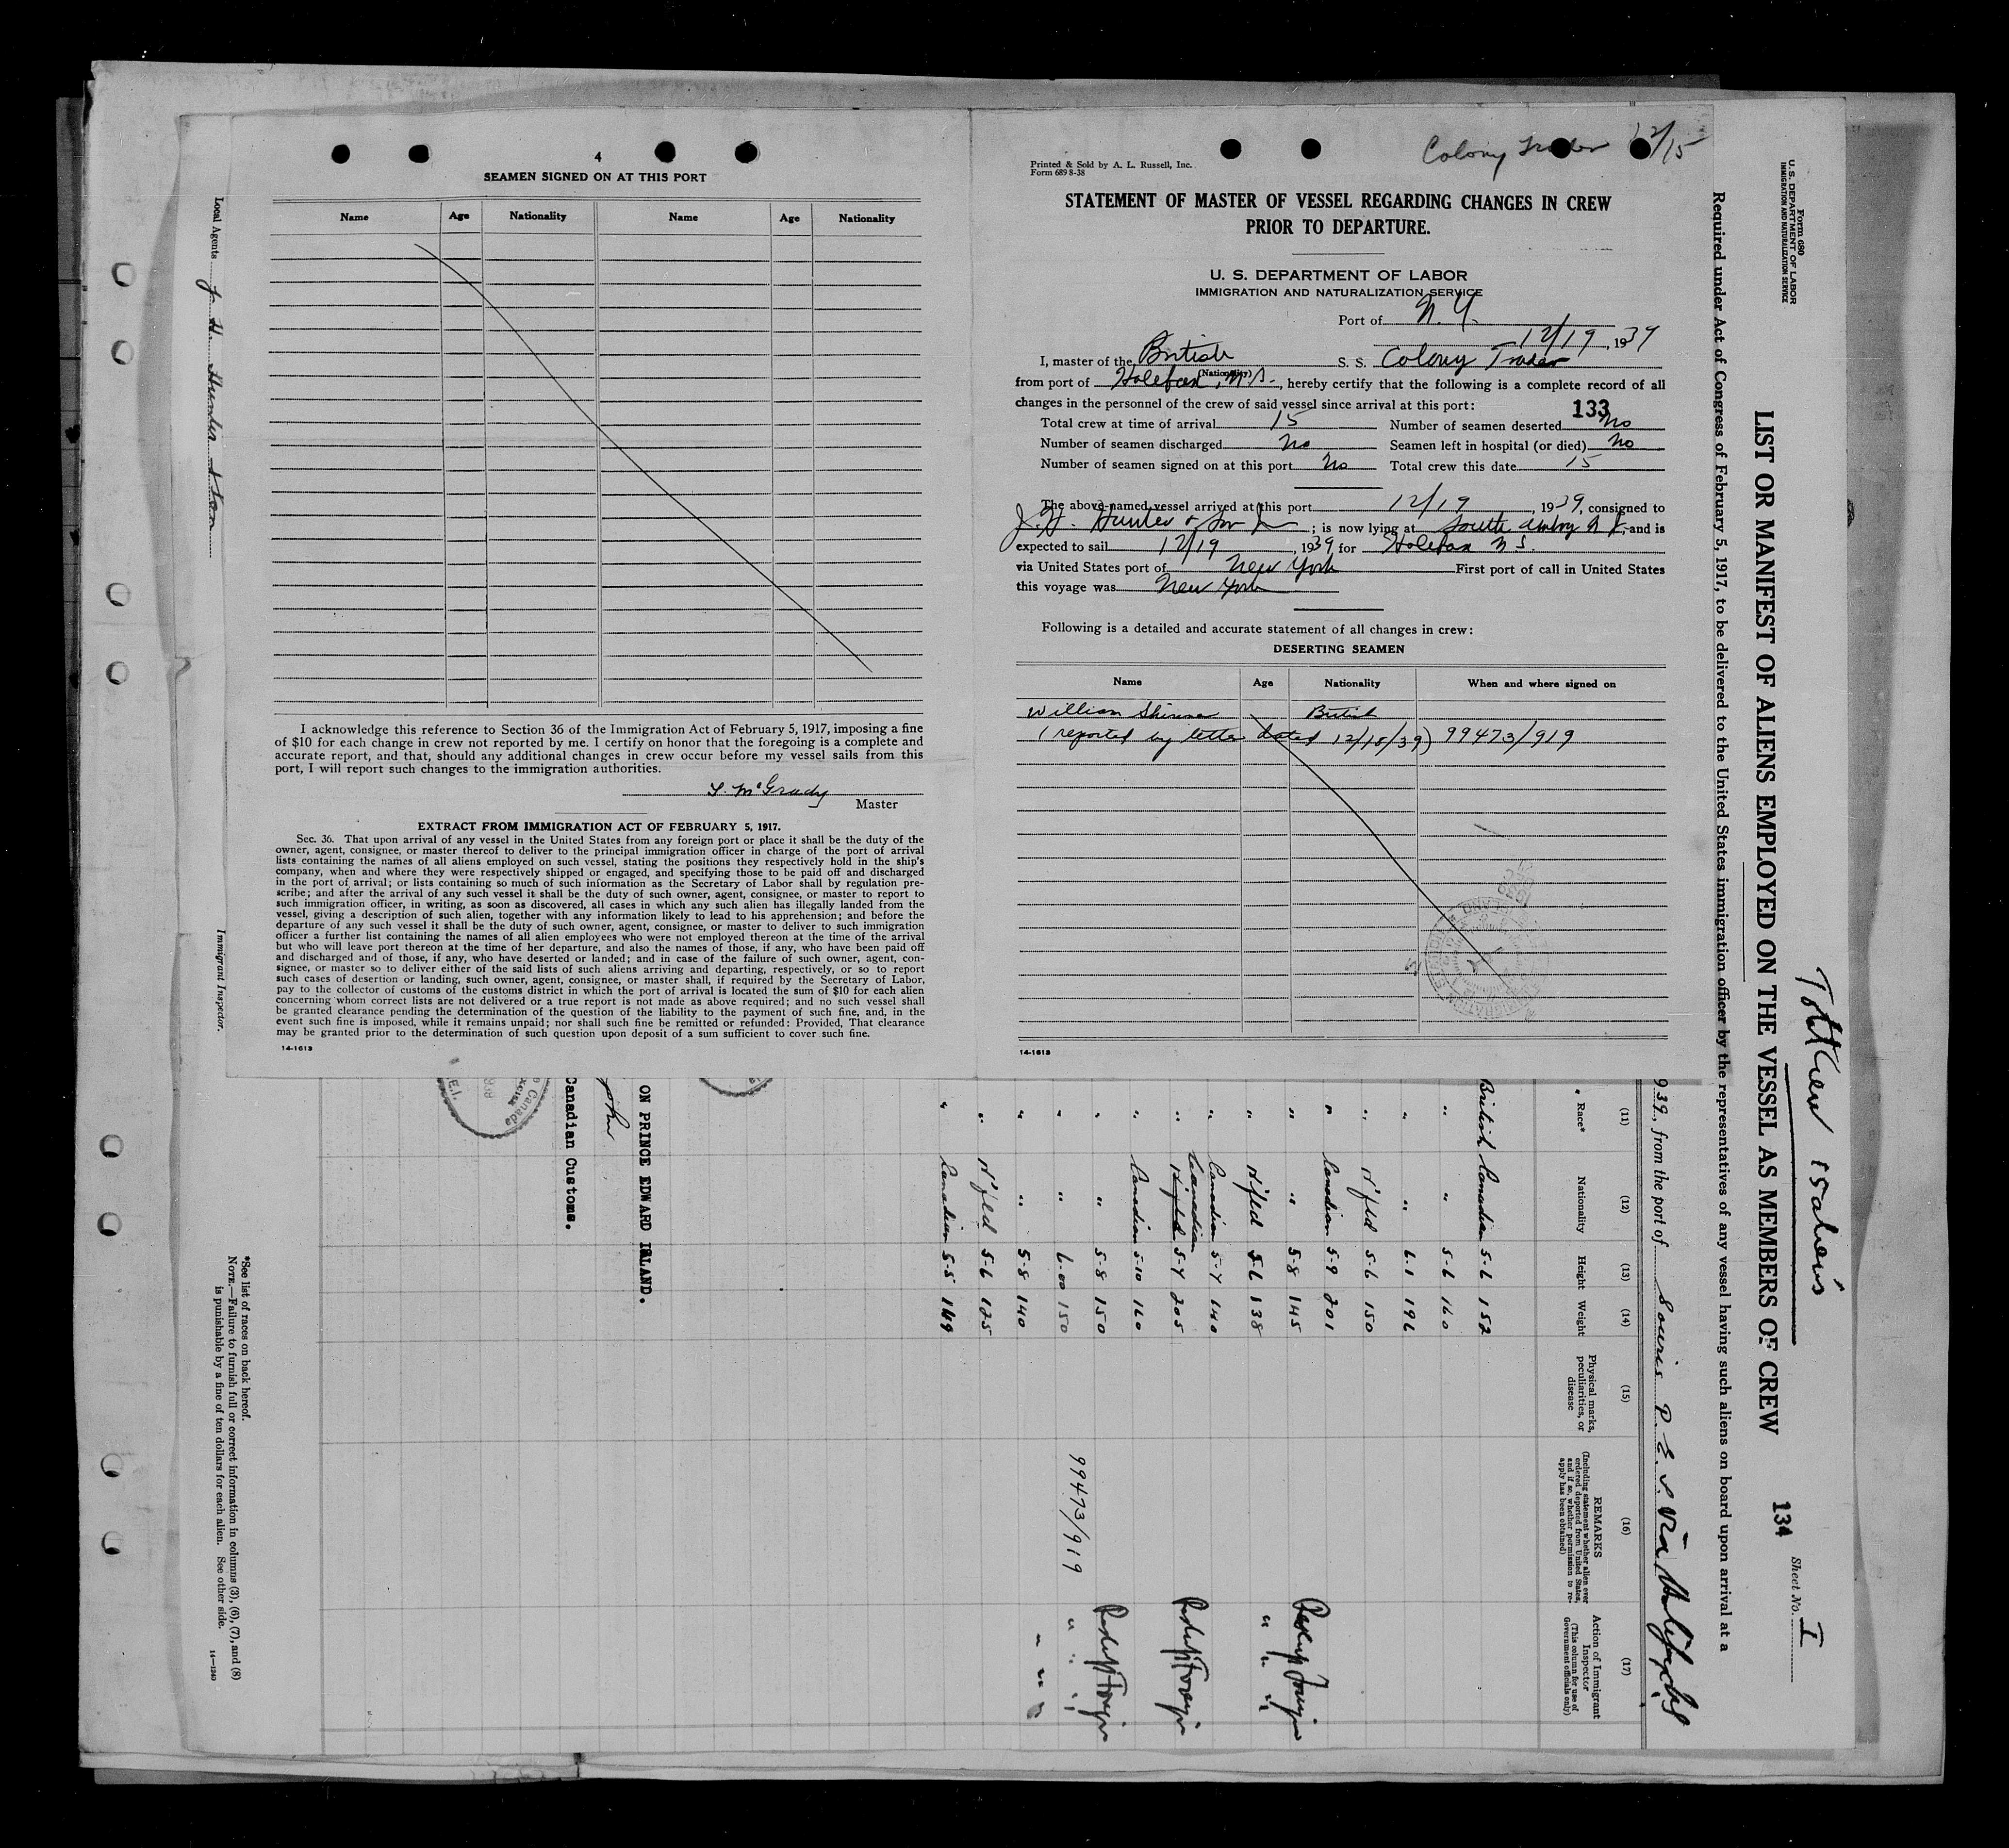 4
SEAMEN SIGNED ON AT THIS PORT
Name Age Nationality Name Age Nationality
I acknowledge this reference to Section 36 of the Immigration Act of February 5, 1917, imposing a fine
of $10 for each change in crew not reported by me. I certify on honor that the foregoing is a complete and
accurate report, and that, should any additional changes in crew occur before my vessel sails from this
port, I will report such changes to the immigration authorities.
McGrady
Master
EXTRACT FROM IMMIGRATION ACT OF FEBRUARY 5, 1917.
Sec. 36. That upon arrival of any vessel in the United States from any foreign port or place it shall be the duty of the
owner, agent, consignee, or master thereof to deliver to the principal immigration officer in charge of the port of arrival
lists containing the names of all aliens employed on such vessel, stating the positions they respectively hold in the ship's
company, when and where they were respectively shipped or engaged, and specifying those to be paid off and discharged
in the port of arrival; or lists containing so much of such information as the Secretary of Labor shall by regulation pre-
scribe; and after the arrival of any such vessel it shall be the duty of such owner, agent, consignee, or master to report to
such immigration officer, in writing, as soon as discovered, all cases in which any such alien has illegally landed from the
vessel, giving a description of such alien, together with any information likely to lead to his apprehension; and before the
departure of any such vessel it shall be the duty of such owner, agent, consignee, or master to deliver to such immigration
officer a further list containing the names of all alien employees who were not employed thereon at the time of the arrival
but who will leave port thereon at the time of her departure, and also the names of those, if any, who have been paid off
and discharged and of those, if any, who have deserted or landed; and in case of the failure of such owner, agent, con-
signee, or master so to deliver either of the said lists of such aliens arriving and departing, respectively, or so to report
such cases of desertion or landing, such owner, agent, consignee, or master shall, if required by the Secretary of Labor,
pay to the collector of customs of the customs district in which the port of arrival is located the sum of $10 for each alien
concerning whom correct lists are not delivered or a true report is not made as above required; and no such vessel shall
be granted clearance pending the determination of the question of the liability to the payment of such fine, and, in the
event such fine is imposed, while it remains unpaid; nor shall such fine be remitted or refunded: Provided, That clearance
may be granted prior to the determination of such question upon deposit of a sum sufficient to cover such fine.
14-1613
Colony Trader 12/15
Printed & Sold by A. L. Russell, Inc.
Form 689 8-38
STATEMENT OF MASTER OF VESSEL REGARDING CHANGES IN CREW
PRIOR TO DEPARTURE.
U. S. DEPARTMENT OF LABOR
IMMIGRATION AND NATURALIZATION SERVICE
Port of N. Y.
12/19, 1939
I, master of the British S. S. Colony Trader
(Nationality)
from port of Halifax, N.S., hereby certify that the following is a complete record of all
changes in the personnel of the crew of said vessel since arrival at this port:
133
Total crew at time of arrival 15 Number of seamen deserted No
Number of seamen discharged No Seamen left in hospital (or died) No
Number of seamen signed on at this port No Total crew this date 15
The above-named vessel arrived at this port 12/19, 1939, consigned to
J. H. Hunter & Son; is now lying at South Amboy N J, and is
expected to sail 12/19, 1939 for Halifax N S.
via United States port of New York First port of call in United States
this voyage was New York
Following is a detailed and accurate statement of all changes in crew:
DESERTING SEAMEN
Name Age Nationality When and where signed on
William British
(reported by letter dated 12/18/39) 99473/919
14-1613
Form 680
U. S. DEPARTMENT OF LABOR
IMMIGRATION AND NATURALIZATION SERVICE
Sheet No. I
134
LIST OR MANIFEST OF ALIENS EMPLOYED ON THE VESSEL AS MEMBERS OF CREW
Required under Act of Congress of February 5, 1917, to be delivered to the United States immigration officer by the representatives of any vessel having such aliens on board upon arrival at a
939, from the port of Souris P. E. I. Via Halifax NS
(11) (12) (13) (14) (15) (16) (17)
Race* Nationality Height Weight Physical marks, peculiarities, or disease REMARKS Action of Immigrant Inspector
(Including statement whether alien ever ordered deported from United States, and if so, whether permission to re-apply has been obtained)
(This column for use of Government officials only)
British Canadian 5-6 152
" " 5-6 160
" " 6-1 196
" N'fld 5-6 150
" Canadian 5-9 201
" " 5-8 145
" N'fld 5-6 138
" Canadian 5-7 140
" Canadian 5-7 205
" Canadian 5-10 160
" " 5-8 150
" " 6-00 150 99473/919
" " 5-8 140
" N'fld 5-6 125
" Canadian 5-5 149
ON PRINCE EDWARD ISLAND.
Canadian Customs.
Canada
P.E.I.
*See list of races on back hereof.
NOTE.—Failure to furnish full or correct information in columns (3), (6), (7), and (8)
is punishable by a fine of ten dollars for each alien. See other side.
14-1240
Local Agents J. H. Hunter & Son
Immigrant Inspector.